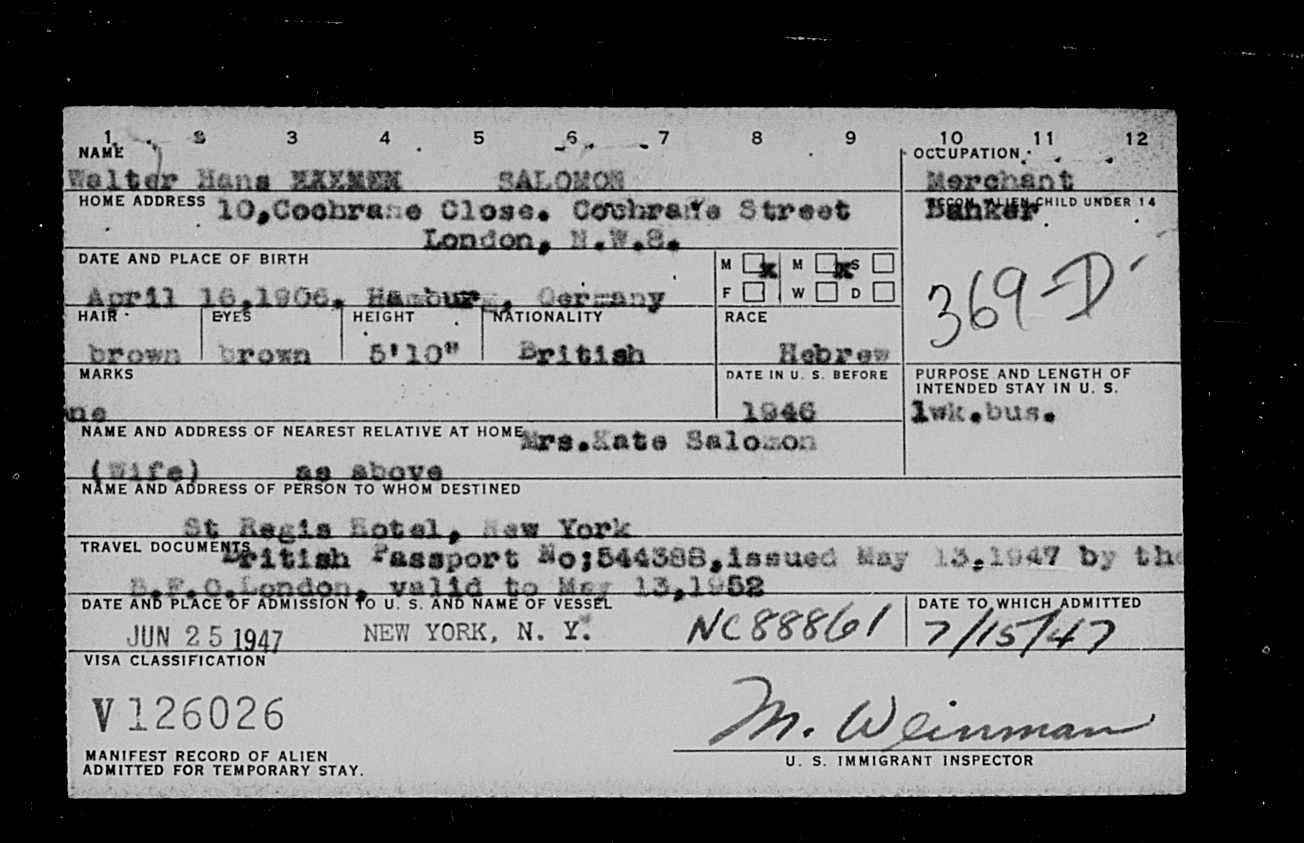 1 2 3 4 5 6 7 8 9 10 11 12
NAME OCCUPATION
Walter Hans SALOMON Merchant
HOME ADDRESS 10,Cochrane Close. Cochrane Street Banker CHILD UNDER 14
London, N.W.8.
DATE AND PLACE OF BIRTH M x M x S
April 16,1906, Hamburg, Germany F W D 369-D
HAIR EYES HEIGHT NATIONALITY RACE
brown brown 5'10" British Hebrew
MARKS DATE IN U. S. BEFORE PURPOSE AND LENGTH OF
INTENDED STAY IN U. S.
ne 1946 1wk.bus.
NAME AND ADDRESS OF NEAREST RELATIVE AT HOME Mrs.Kate Salomon
(Wife) as above
NAME AND ADDRESS OF PERSON TO WHOM DESTINED
St Regis Hotel, New York
TRAVEL DOCUMENTS British Passport No;544388,issued May 13,1947 by the
London, valid to May 13,1952
DATE AND PLACE OF ADMISSION TO U. S. AND NAME OF VESSEL DATE TO WHICH ADMITTED
JUN 25 1947 NEW YORK, N. Y. NC88861 7/15/47
VISA CLASSIFICATION
V126026
M. Weinman
MANIFEST RECORD OF ALIEN
ADMITTED FOR TEMPORARY STAY.
U. S. IMMIGRANT INSPECTOR